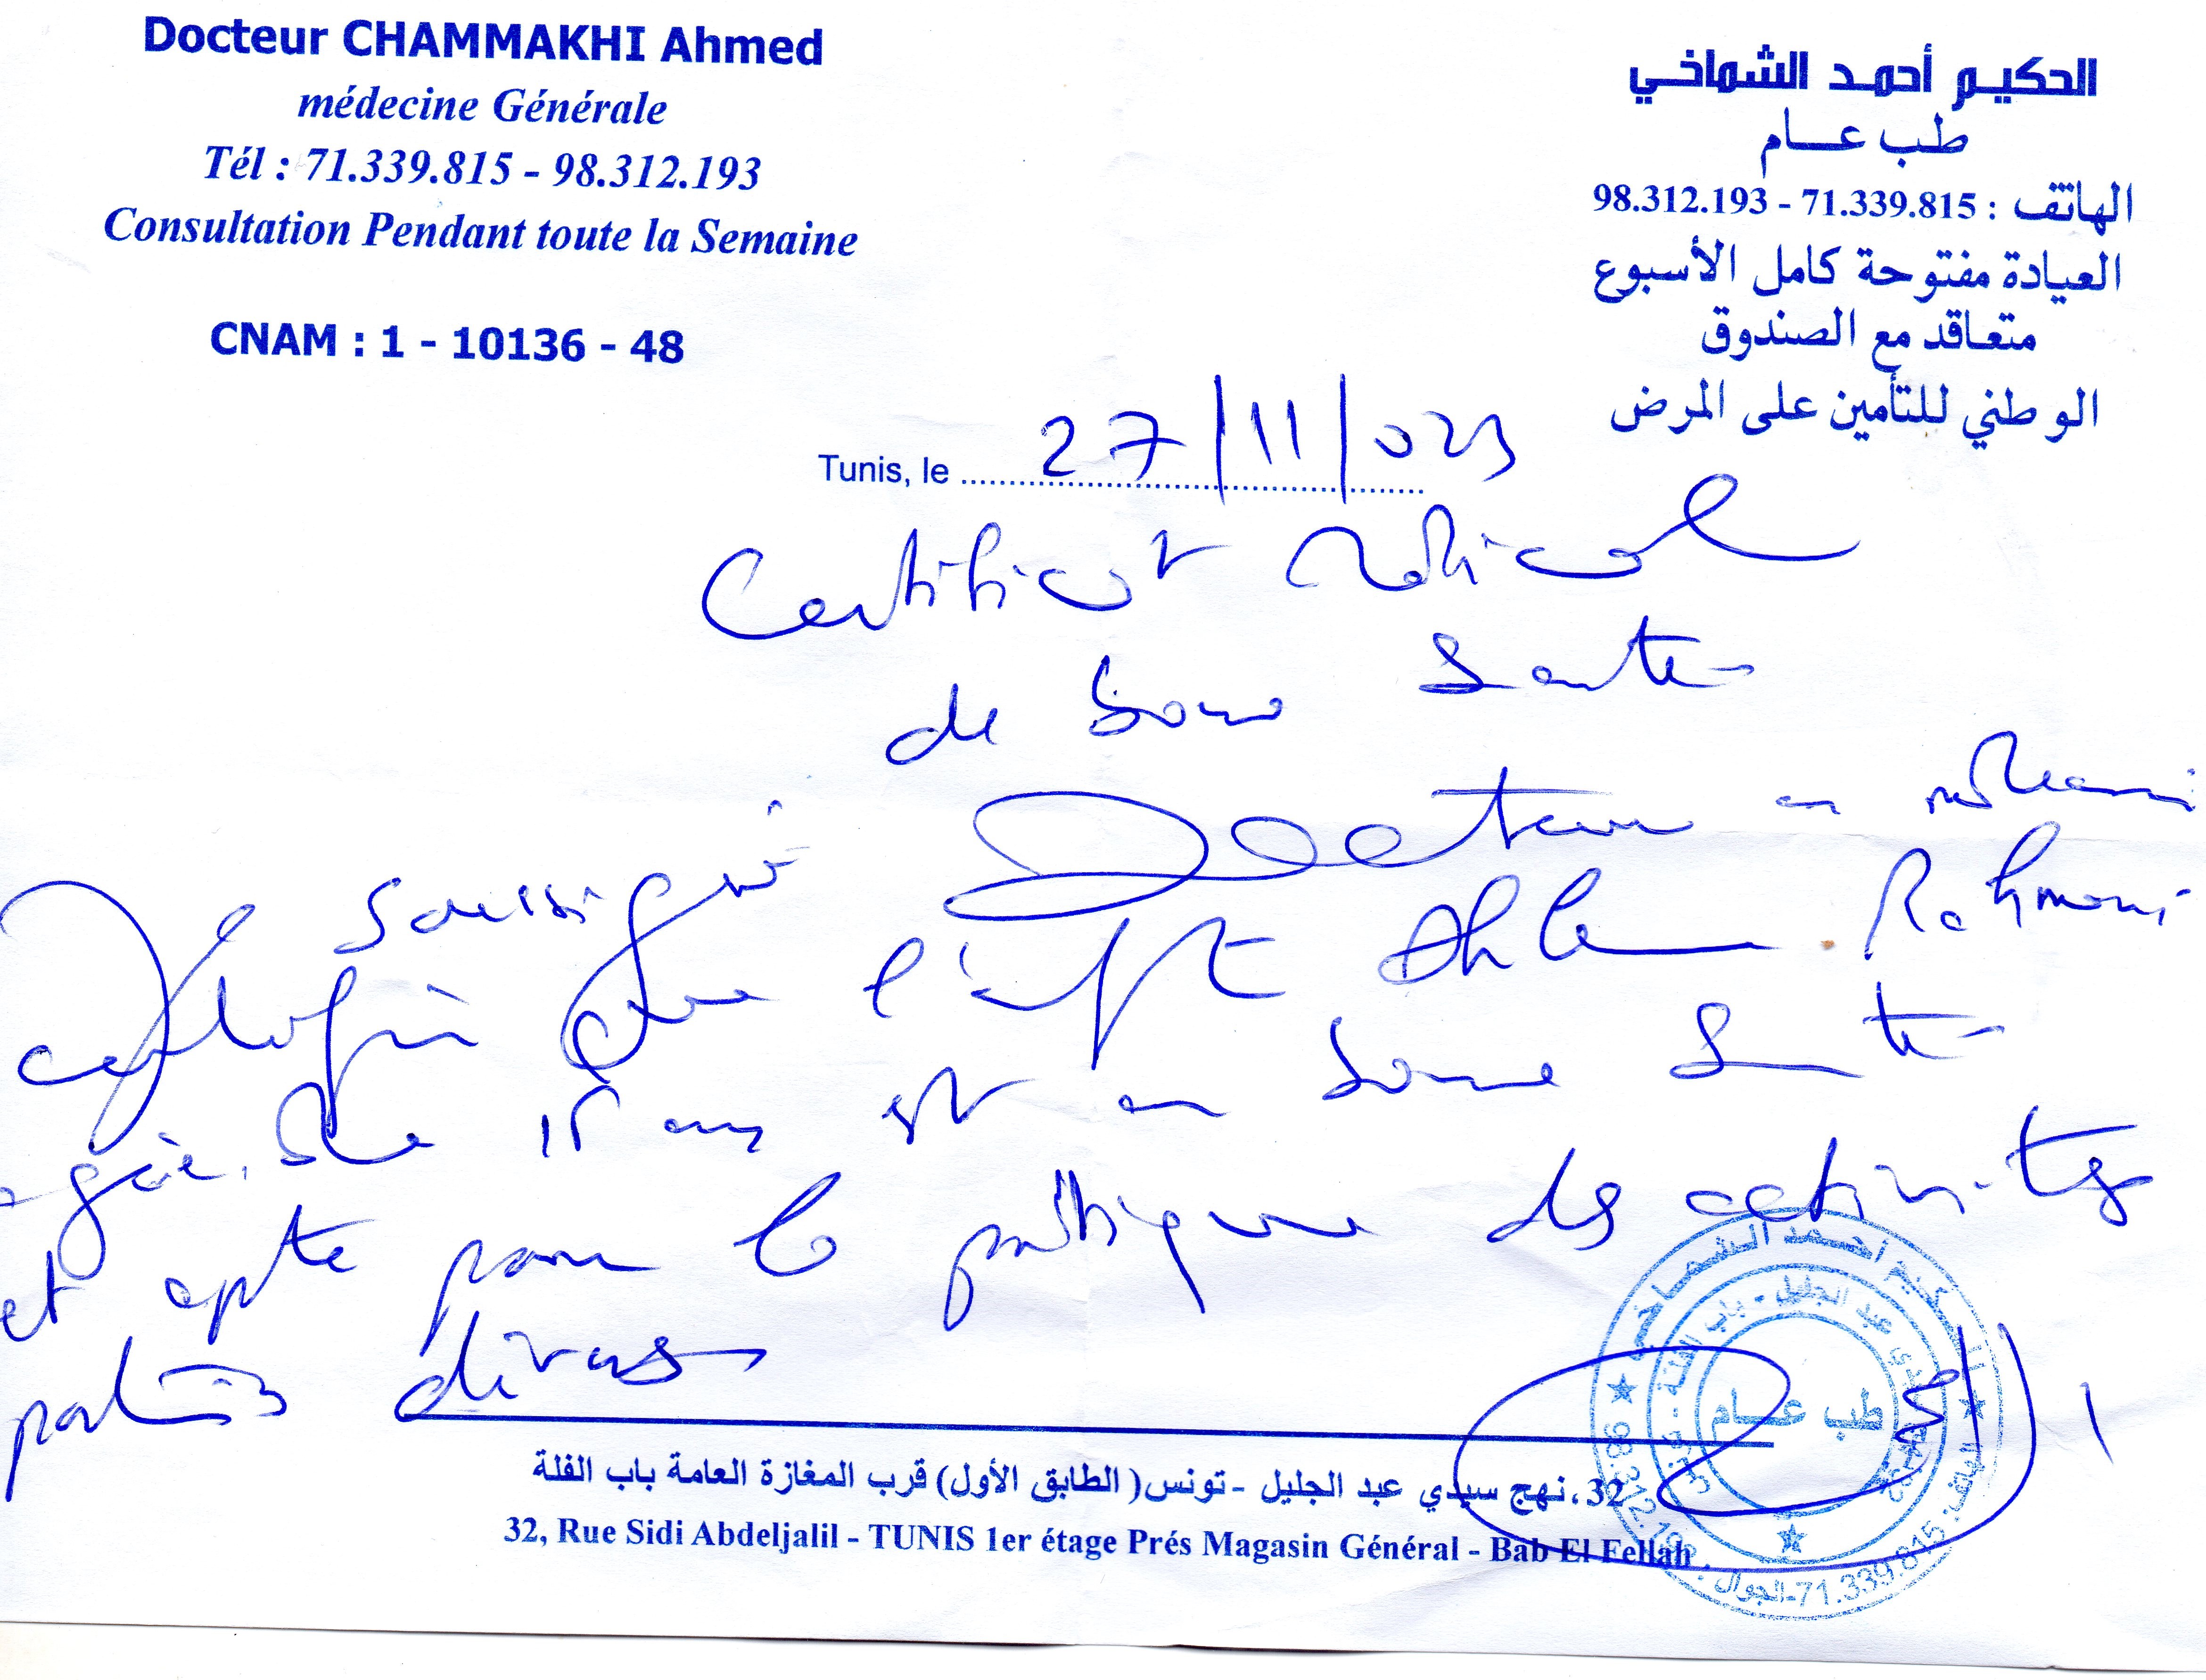 Docteur CHAMMAKHI Ahmed
médecine Générale
Tél : 71.339.815 - 98.312.193
Consultation Pendant toute la Semaine
CNAM : 1 - 10136 - 48
الحكيم أحمد الشماخي
طب عام
الهاتف : 71.339.815 - 98.312.193
العيادة مفتوحة كامل الأسبوع
متعاقد مع الصندوق
الوطني للتأمين على المرض
Tunis, le 27/11/023
Certificat Médical
de bonne santé
Je soussigné Docteur en médecine
certifie que l'enfant Rahmani
agée de 15 ans est en bonne santé
et apte pour la pratique des activités
sportives diverses
طب عام
32، نهج سيدي عبد الجليل - تونس (الطابق الأول) قرب المغازة العامة باب الفلة
32, Rue Sidi Abdeljalil - TUNIS 1er étage Prés Magasin Général - Bab El Fellah